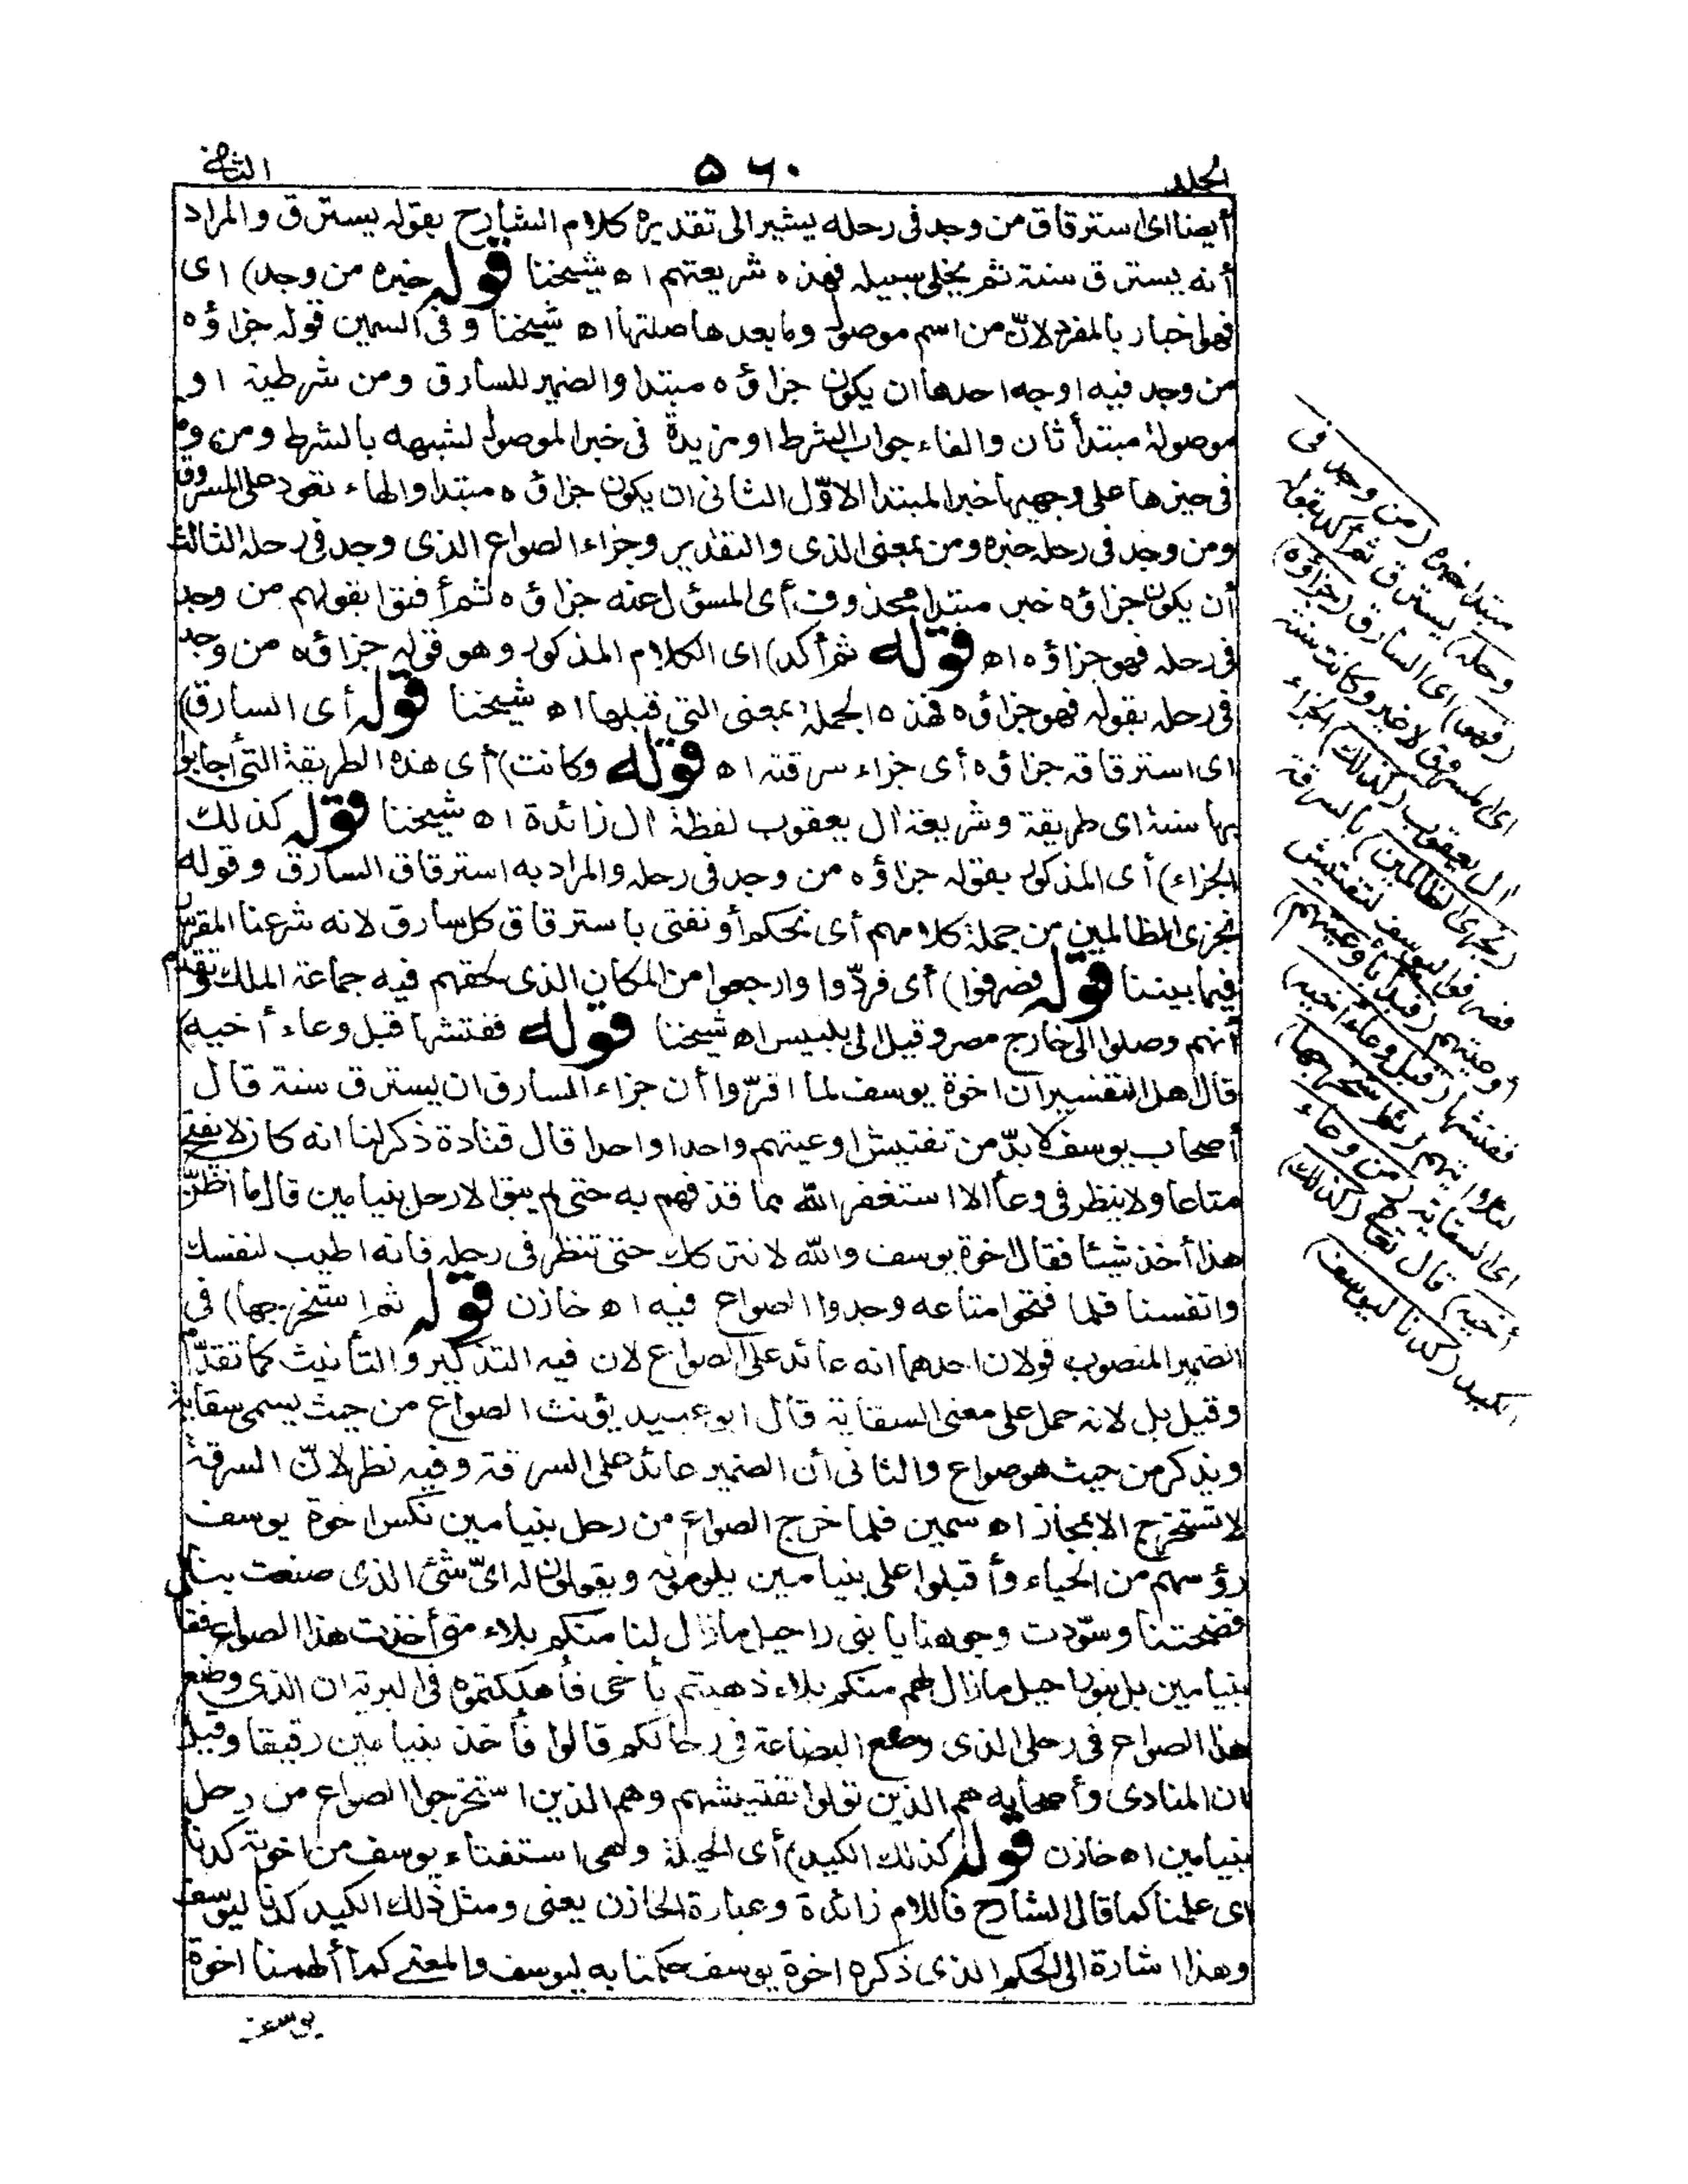 الجلد ٥٦٠ الثاني
أيضا اى استرقاق من وجد فى رحله يشير الى تقديره كلام الشارح بقوله يسترق والمراد
أنه يسترق سنة ثم يخلى سبيله فهذه شريعتهم اه شيخنا قوله خبره من وجد) اى
فهو اخبار بالمفرد لانّ من اسم موصول وما بعدها صلتها اه شيخنا وفى السمين قوله جزاؤه
من وجد فيه اوجه احدها ان يكون جزاؤه مبتدا والضمير للسارق ومن شرطية او
موصولة مبتدأ ثان والفاء جواب الشرط او مزيدة فى خبر الموصول لشبهه بالشرط ومن وما
فى حيزها على وجهيها خبر المبتدا الاوّل الثانى ان يكون جزاؤه مبتدا والهاء تعود على المسروق
ومن وجد فى رحله خبره ومن بمعنى الذى والتقدير وجزاء الصواع الذى وجد فى رحله الثالث
أن يكون جزاؤه خبر مبتدا محذوف أى المسؤل عنه جزاؤه ثم أفتوا بقولهم من وجد
فى رحله فهو جزاؤه اه قوله ثم أكد) اى الكلام المذكور وهو قوله جزاؤه من وجد
فى رحله بقوله فهو جزاؤه فهذه الجملة بمعنى التى قبلها اه شيخنا قوله أى السارق)
اى استرقاقه جزاؤه أى جزاء سرقته اه قوله وكانت) أى هذه الطريقة التى أجابوا
بها سنة اى طريقة وشريعة ال يعقوب لفظة ال زائدة اه شيخنا قوله كذلك
الجزاء) أى المذكور بقوله جزاؤه من وجد فى رحله والمراد به استرقاق السارق وقوله
نجزى الظالمين من جملة كلامهم أى نحكم أو نفتى باسترقاق كل سارق لانه شرعنا المقرر
فيما بيننا قوله فصرفوا) أى فردّوا وارجعوا من المكان الذى لحقهم فيه جماعة الملك وتقدم
أنهم وصلوا الى خارج مصر وقيل الى بلبيس اه شيخنا قوله ففتشها قبل وعاء أخيه)
قال اهل التفسير ان اخوة يوسف لما اقرّوا أن جزاء السارق ان يسترق سنة قال
أصحاب يوسف لا بدّ من تفتيش اوعيتهم واحدا واحدا قال قتادة ذكر لنا انه كان لا يفتح
متاعا ولا ينظر فى وعاء الا استغفر الله مما قذفهم به حتى لم يبق الا رحل بنيامين قال ما أظنّ
هذا أخذ شيئا فقال اخوة يوسف والله لا نتركك حتى تنظر فى رحله فانه اطيب لنفسك
وانفسنا فلما فتحوا متاعه وجدوا الصواع فيه اه خازن قوله ثم استخرجها) فى
الضمير المنصوب قولان احدهما انه عائد على الصواع لان فيه التذكير والتأنيث كما تقدّم
وقيل بل لانه حمل على معنى السقاية قال ابو عبيد يؤنث الصواع من حيث يسمى سقاية
ويذكر من حيث هو صواع والثانى أن الضمير عائد على السرقة وفيه نظر لانّ السرقة
لا تستخرج الا بمجاز اه سمين فلما خرج الصواع من رحل بنيامين نكس اخوة يوسف
رؤسهم من الحياء وأقبلوا على بنيامين يلومونه ويقولون له اىّ شئ الذى صنعت بنا
فضحتنا وسوّدت وجوهنا يا بنى راحيل ما زال لنا منكم بلاء متى أخذت هذا الصواع فقال
بنيامين بل بنو راحيل ما زال لهم منكم بلاء ذهبتم بأخى فأهلكتموه فى البرية ان الذى وضع
هذا الصواع فى رحلى الذى وضع البضاعة فى رحالكم قالوا فأخذ بنيامين رقيقا وقيل
ان المنادى وأصحابه هم الذين تولوا تفتيشهم وهم الذين استخرجوا الصواع من رحل
بنيامين اه خازن قوله كذلك الكيد) أى الحيلة وهى استفتاء يوسف من اخوته كدنا
اى علمنا كما قال الشارح فاللام زائدة وعبارة الخازن يعنى ومثل ذلك الكيد كدنا ليوسف
وهذا اشارة الى الحكم الذى ذكره اخوة يوسف حكمنا به ليوسف والمعنى كما ألهمنا اخوة
يوسف
مبتدا خبره (من وجد فى
رحله) يسترق ثم أكد بقوله
(فهو) اى السارق (جزاؤه)
اى المسروق لا غير وكانت سنة
ال يعقوب (كذلك) الجزاء
(نجزى الظالمين) بالسرقة
فصرفوا ليوسف لتفتيش
أوعيتهم (فبدأ بأوعيتهم)
ففتشها (قبل وعاء أخيه)
(ثم استخرجها)
اى السقاية (من وعاء
أخيه) قال تعالى (كذلك)
الكيد (كدنا ليوسف)